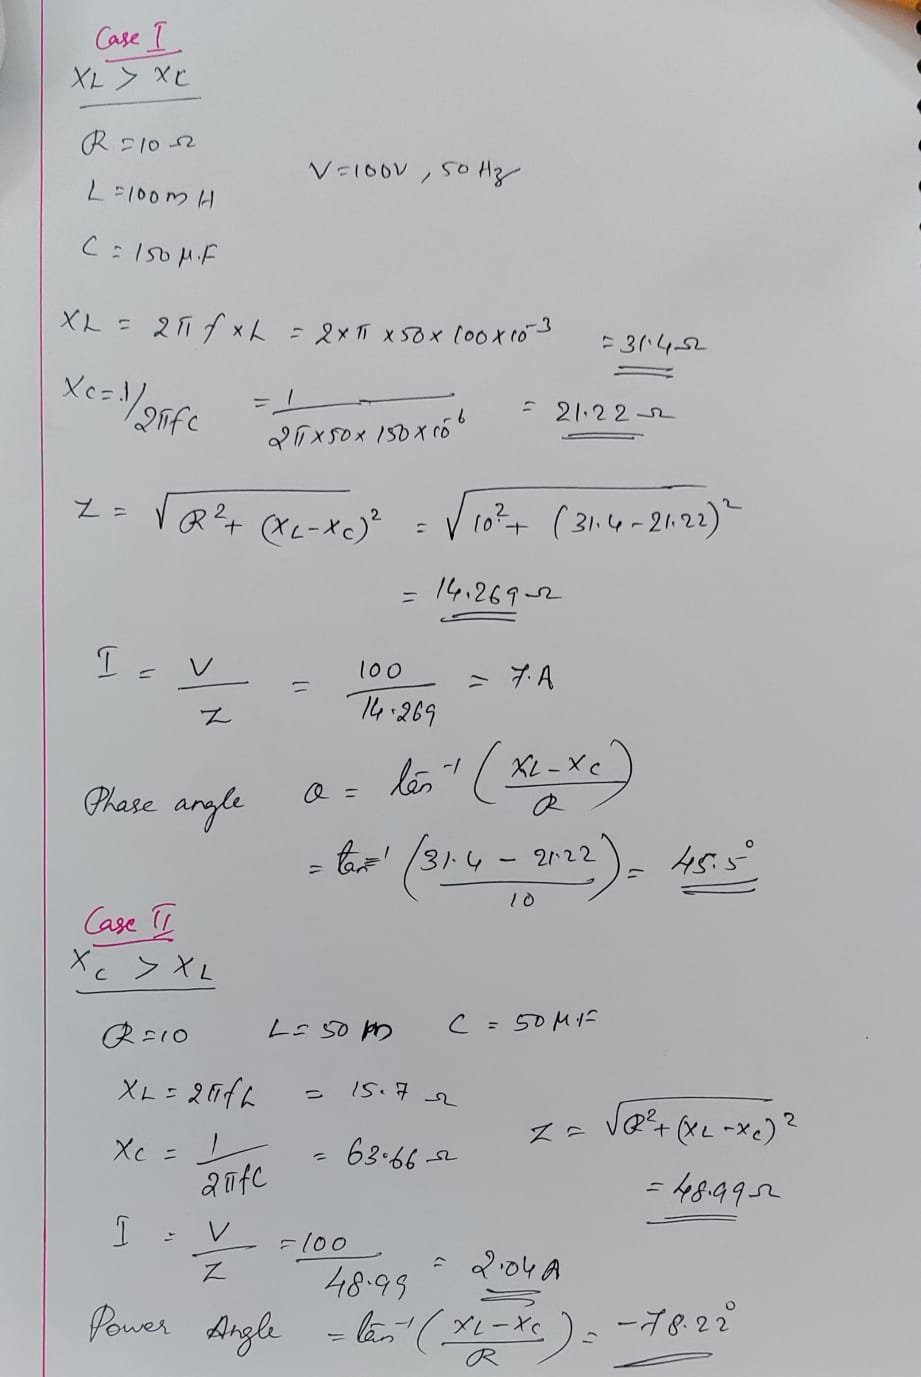 Case I
XL > XC
R = 10 Ω
V = 100V, 50 Hz
L = 100 m H
C = 150 μ.F
XL = 2π f x L = 2 x π x 50 x 100 x 10⁻³ = 31.4 Ω
Xc = 1/2πfc = 1/2π x 50 x 150 x 10⁻⁶ = 21.22 Ω
Z = √R² + (XL - Xc)² = √10² + (31.4 - 21.22)²
= 14.269 Ω
I = V/Z = 100/14.269 = 7.A
Phase angle Q = tan⁻¹ (XL - Xc/R)
= tan⁻¹ (31.4 - 21.22/10) = 45.5°
Case II
Xc > XL
R = 10 L = 50 m C = 50 μF
XL = 2πfL = 15.7 Ω
Z = √R² + (XL - Xc)²
Xc = 1/2πfC = 63.66 Ω
= 48.99 Ω
I = V/Z = 100/48.99 = 2.04 A
Power Angle = tan⁻¹ (XL - Xc/R) = -78.22°